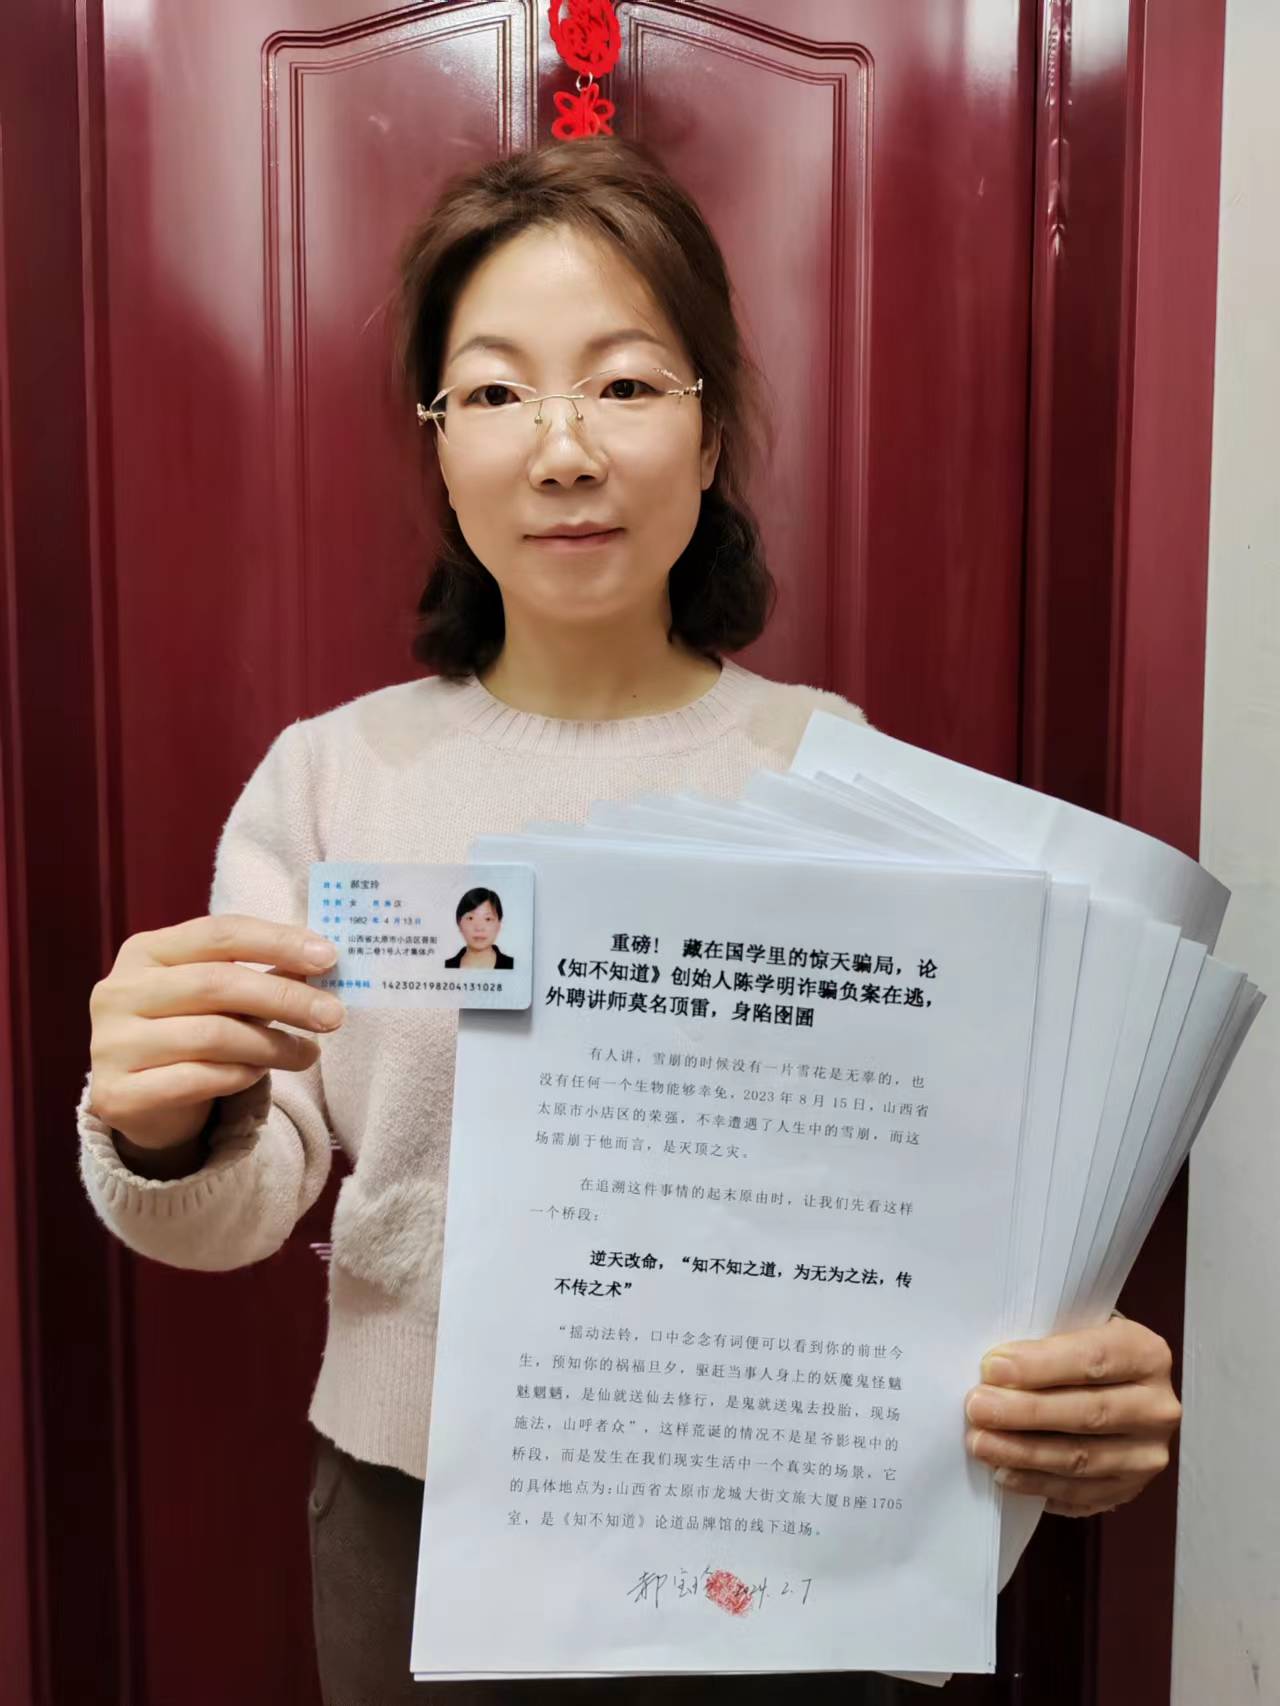 姓名 郝宝玲
性别 女 民族 汉
出生 1982 年 4 月 13 日
住址 山西省太原市小店区晋阳
街南二巷1号人才集体户
公民身份号码 142302198204131028
重磅！ 藏在国学里的惊天骗局，论
《知不知道》创始人陈学明诈骗负案在逃，
外聘讲师莫名顶雷，身陷囹圄
有人讲，雪崩的时候没有一片雪花是无辜的，也
没有任何一个生物能够幸免，2023 年 8 月 15 日，山西省
太原市小店区的荣强，不幸遭遇了人生中的雪崩，而这
场需崩于他而言，是灭顶之灾。
在追溯这件事情的起末原由时，让我们先看这样
一个桥段：
逆天改命，“知不知之道，为无为之法，传
不传之术”
“摇动法铃，口中念念有词便可以看到你的前世今
生，预知你的祸福旦夕，驱赶当事人身上的妖魔鬼怪魑
魅魍魉，是仙就送仙去修行，是鬼就送鬼去投胎，现场
施法，山呼者众”，这样荒诞的情况不是星爷影视中的
桥段，而是发生在我们现实生活中一个真实的场景，它
的具体地点为：山西省太原市龙城大街文旅大厦 B 座 1705
室，是《知不知道》论道品牌馆的线下道场。
郝宝玲 2024.2.7